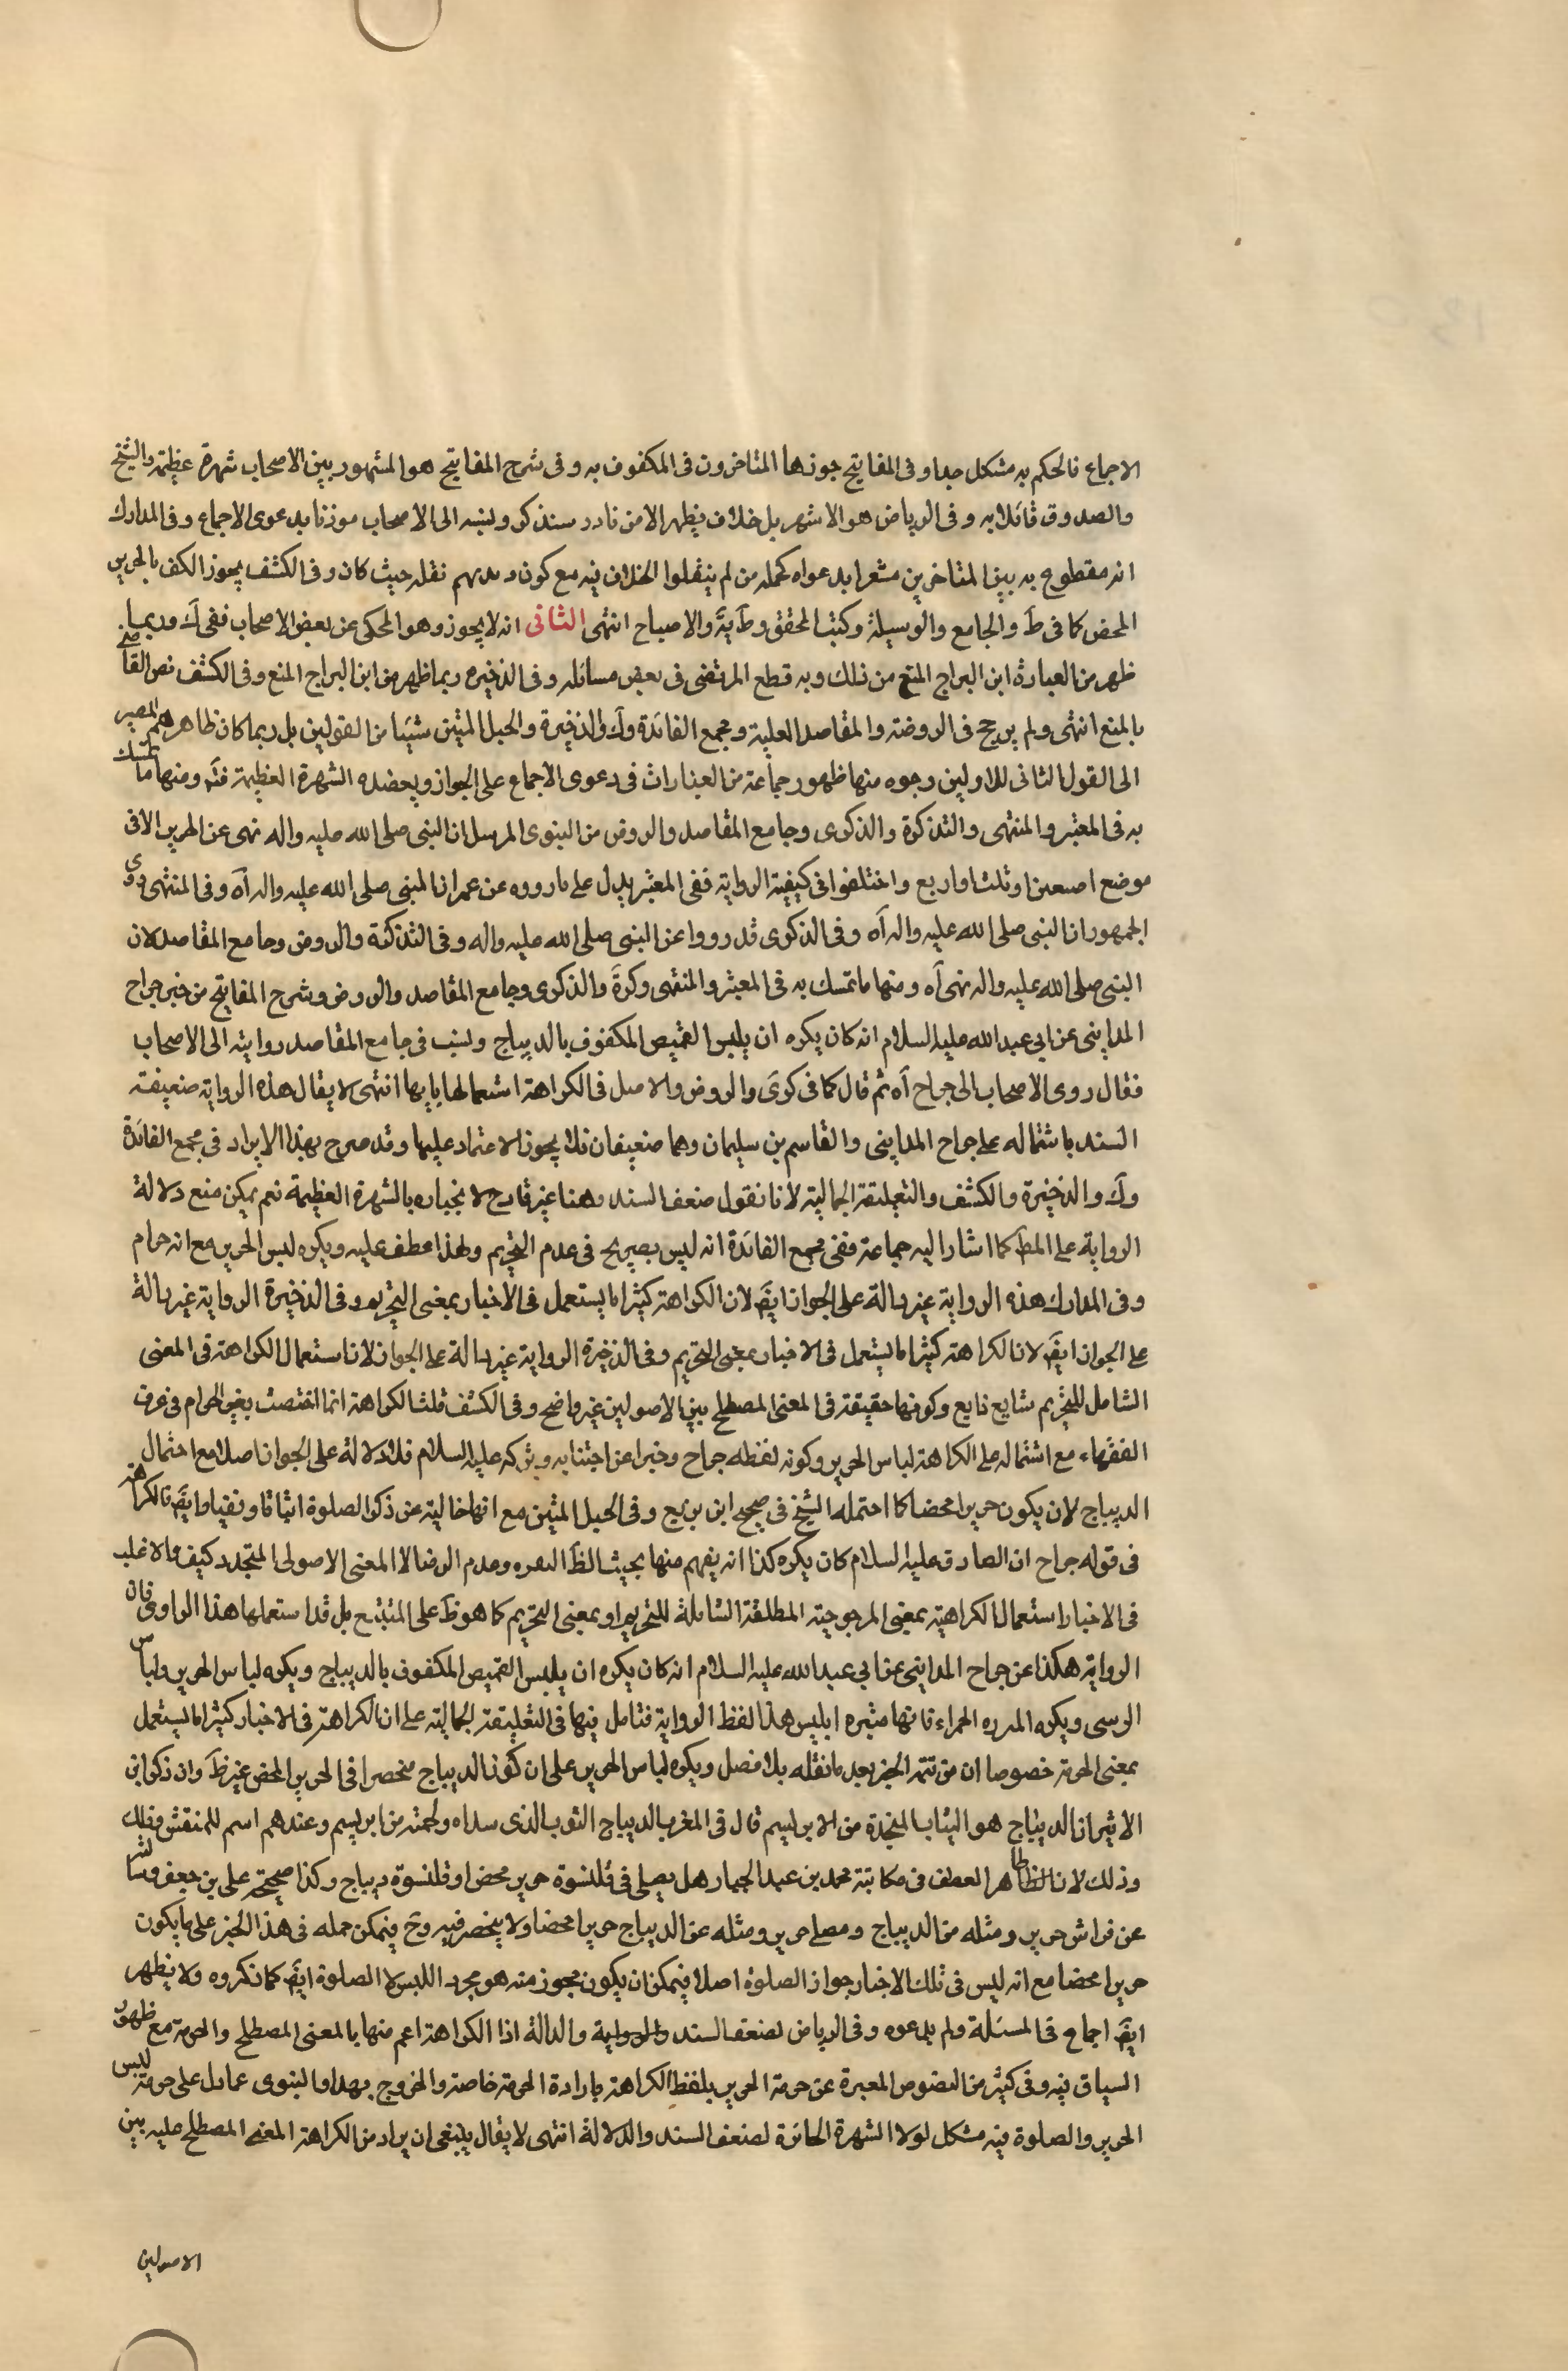 الاجماع فالحكم به مشكل جدا وفى المفاتيح جوزها المتاخرون فى المكفوف به وفى شرح المفاتيح هو المشهور بين الاصحاب شهرة عظيمة والشيخ
والصدوق قائلا به وفى الرياض هو الاشهر بل خلاف يظهر الا من نادر سنذكر ونسبه الى الاصحاب موذنا بدعوى الاجماع وفى المدارك
انه مقطوع به بين المتاخرين مشعرا بدعواه كجملة من لم ينقلوا الخلاف فيه مع كون ديدنهم نقله حيث كان وفى الكشف يجوز الكف بالحرير
المحض كما فى ط والجامع والوسيلة وكتب المحقق وظ ية والاصباح انتهى الثانى انه لا يجوز وهو المحكى عن بعض الاصحاب ففى ك وربما
ظهر من العبارة ابن البراج المنع من ذلك وبه قطع المرتضى فى بعض مسائله وفى الذخيره ربما ظهر من ابن البراج المنع وفى الكشف نص القاضى
بالمنع انتهى ولم يرجح فى الروضة والمقاصد العلية ومجمع الفائدة وك والذخيرة والحبل المتين شيئا من القولين بل ربما كان ظاهرهم المصير
الى القول الثانى للاولين وجوه منها ظهور جماعة من العبارات فى دعوى الاجماع على الجواز ويعضده الشهرة العظيمة فتم ومنها ما تمسك
به فى المعتبر والمنتهى والتذكرة والذكرى وجامع المقاصد والروض من النبوى المرسل ان النبى صلى الله عليه واله نهى عن الحرير الا فى
موضع اصبعين او ثلث او اربع واختلفوا فى كيفية الرواية ففى المعتبر يدل على ما رووه عن عمر ان النبى صلى الله عليه واله آه وفى المنتهى روى
الجمهور ان النبى صلى الله عليه واله آه وفى الذكرى قد رووا عن النبى صلى الله عليه واله وفى التذكرة والروض وجامع المقاصد لان
النبى صلى الله عليه واله نهى آه ومنها ما تمسك به فى المعتبر والمنتهى وكرة والذكرى وجامع المقاصد والروض وشرح المفاتيح من خبر جراح
المداينى عن ابى عبد الله عليه السلام انه كان يكره ان يلبس القميص المكفوف بالديباج ونسب فى جامع المقاصد روايته الى الاصحاب
فقال روى الاصحاب الى جراح آه ثم قال كما فى كرى والروض والاصل فى الكراهة استعمالها بابها انتهى لا يقال هذه الرواية ضعيفة
السند باشتماله على جراح المداينى والقاسم بن سليمان وهما ضعيفان فلا يجوز الاعتماد عليها وقد صرح بهذا الايراد فى مجمع الفائدة
وك والذخيرة والكشف والتعليقة الجمالية لانا نقول ضعف السند وهنا غير قادح لانجباره بالشهرة العظيمة نعم يمكن منع دلالة
الرواية على المط كما اشار اليه جماعة ففى مجمع الفائدة انه ليس بصريح فى عدم التحريم ولهذا عطف عليه ويكره لبس الحرير مع انه حرام
وفى المدارك هذه الرواية غير دالة على الجواز ايض لان الكراهة كثيرا ما يستعمل فى الاخبار بمعنى التحريم وفى الذخيرة الرواية غير دالة
على الجواز ايض لان الكراهة كثيرا ما يستعمل فى الاخبار بمعنى التحريم وفى الذخيرة الرواية غير دالة على الجواز لان استعمال الكراهة فى المعنى
الشامل للتحريم شايع ذايع وكونها حقيقة فى المعنى المصطلح بين الاصولين غير واضح وفى الكشف قلت الكراهة انما اختصت بغير الحرام فى عرف
الفقهاء مع اشتماله على الكراهة لباس الحرير وكونه لفظه جراح وخبرا عن اجتنابه وتركه عليه السلام فلا دلالة على الجواز اصلا مع احتمال
الديباج لان يكون حريرا محضا كما احتمله الشيخ فى صحيح ابن بزيع وفى الحبل المتين مع انها خالية عن ذكر الصلوة اثباتا ونفيا وايض فالكراهة
فى قوله جراح ان الصادق عليه السلام كان يكره كذا انه يفهم منها بحيث الظ وعدم الرضا لا المعنى الاصولى المتجدد كيف والاغلب
فى الاخبار استعمال الكراهية بمعنى المرجوحية المطلقة الشاملة للتحريم او بمعنى التحريم كما هو ظ على المتتبع بل قد استعملها هذا الراوى فان
الرواية هكذا عن جراح المداينى عن ابى عبد الله عليه السلام انه كان يكره ان يلبس القميص المكفوف بالديباج ويكره لباس الحرير ولباس
الوسى ويكره الحمراء فانها ميثره ابليس هذا لفظ الرواية فتامل فيها فى التعليقة الجمالية على ان الكراهة فى الاخبار كثيرا ما يستعمل
بمعنى الحرمة خصوصا ان من تتمة الخبر بعد ما نقله بلا فصل ويكره لباس الحرير على ان كون الديباج منحصرا فى الحرير المحض غير ظ وان ذكر ابن
الاثير ان الديباج هو الثياب المتخذة من الابريسم قال فى المغرب الديباج الثوب الذى سداه ولحمته من ابريسم وعندهم اسم للمنقش وذلك
وذلك لان الظاهر العطف فى مكاتبة محمد بن عبد الجبار هل يصلى فى قلنسوة حرير محض او قلنسوة ديباج وكذا صحيحة على بن جعفر
عن فراش حرير ومثله من الديباج ومصلى حرير ومثله عن الديباج حريرا محضا ولا ينحصر فيه وح فيمكن حمله فى هذا الخبر على ما يكون
حريرا محضا مع انه ليس فى تلك الاخبار جواز الصلوة اصلا فيمكن ان يكون مجوز منه هو مجرد اللبس لا الصلوة ايض كما نكروه ولا يظهر
ايض اجماع فى المسئلة ولم يدعوه وفى الرياض لضعف السند والدلالة اذا الكراهة اعم منها بالمعنى المصطلح والحرمة مع ظهور
السياق فيه وفى كثير من النصوص المعبرة عن حرمة الحرير بلفظ الكراهة بارادة الحرمة خاصة والخروج بهذا والنبوى عما دل على حرمة لبس
الحرير والصلوة فيه مشكل لولا الشهرة الحائزة لضعف السند والدلالة انتهى لا يقال ينبغى ان يراد من الكراهة المعنى المصطلح عليه بين
الاصولين